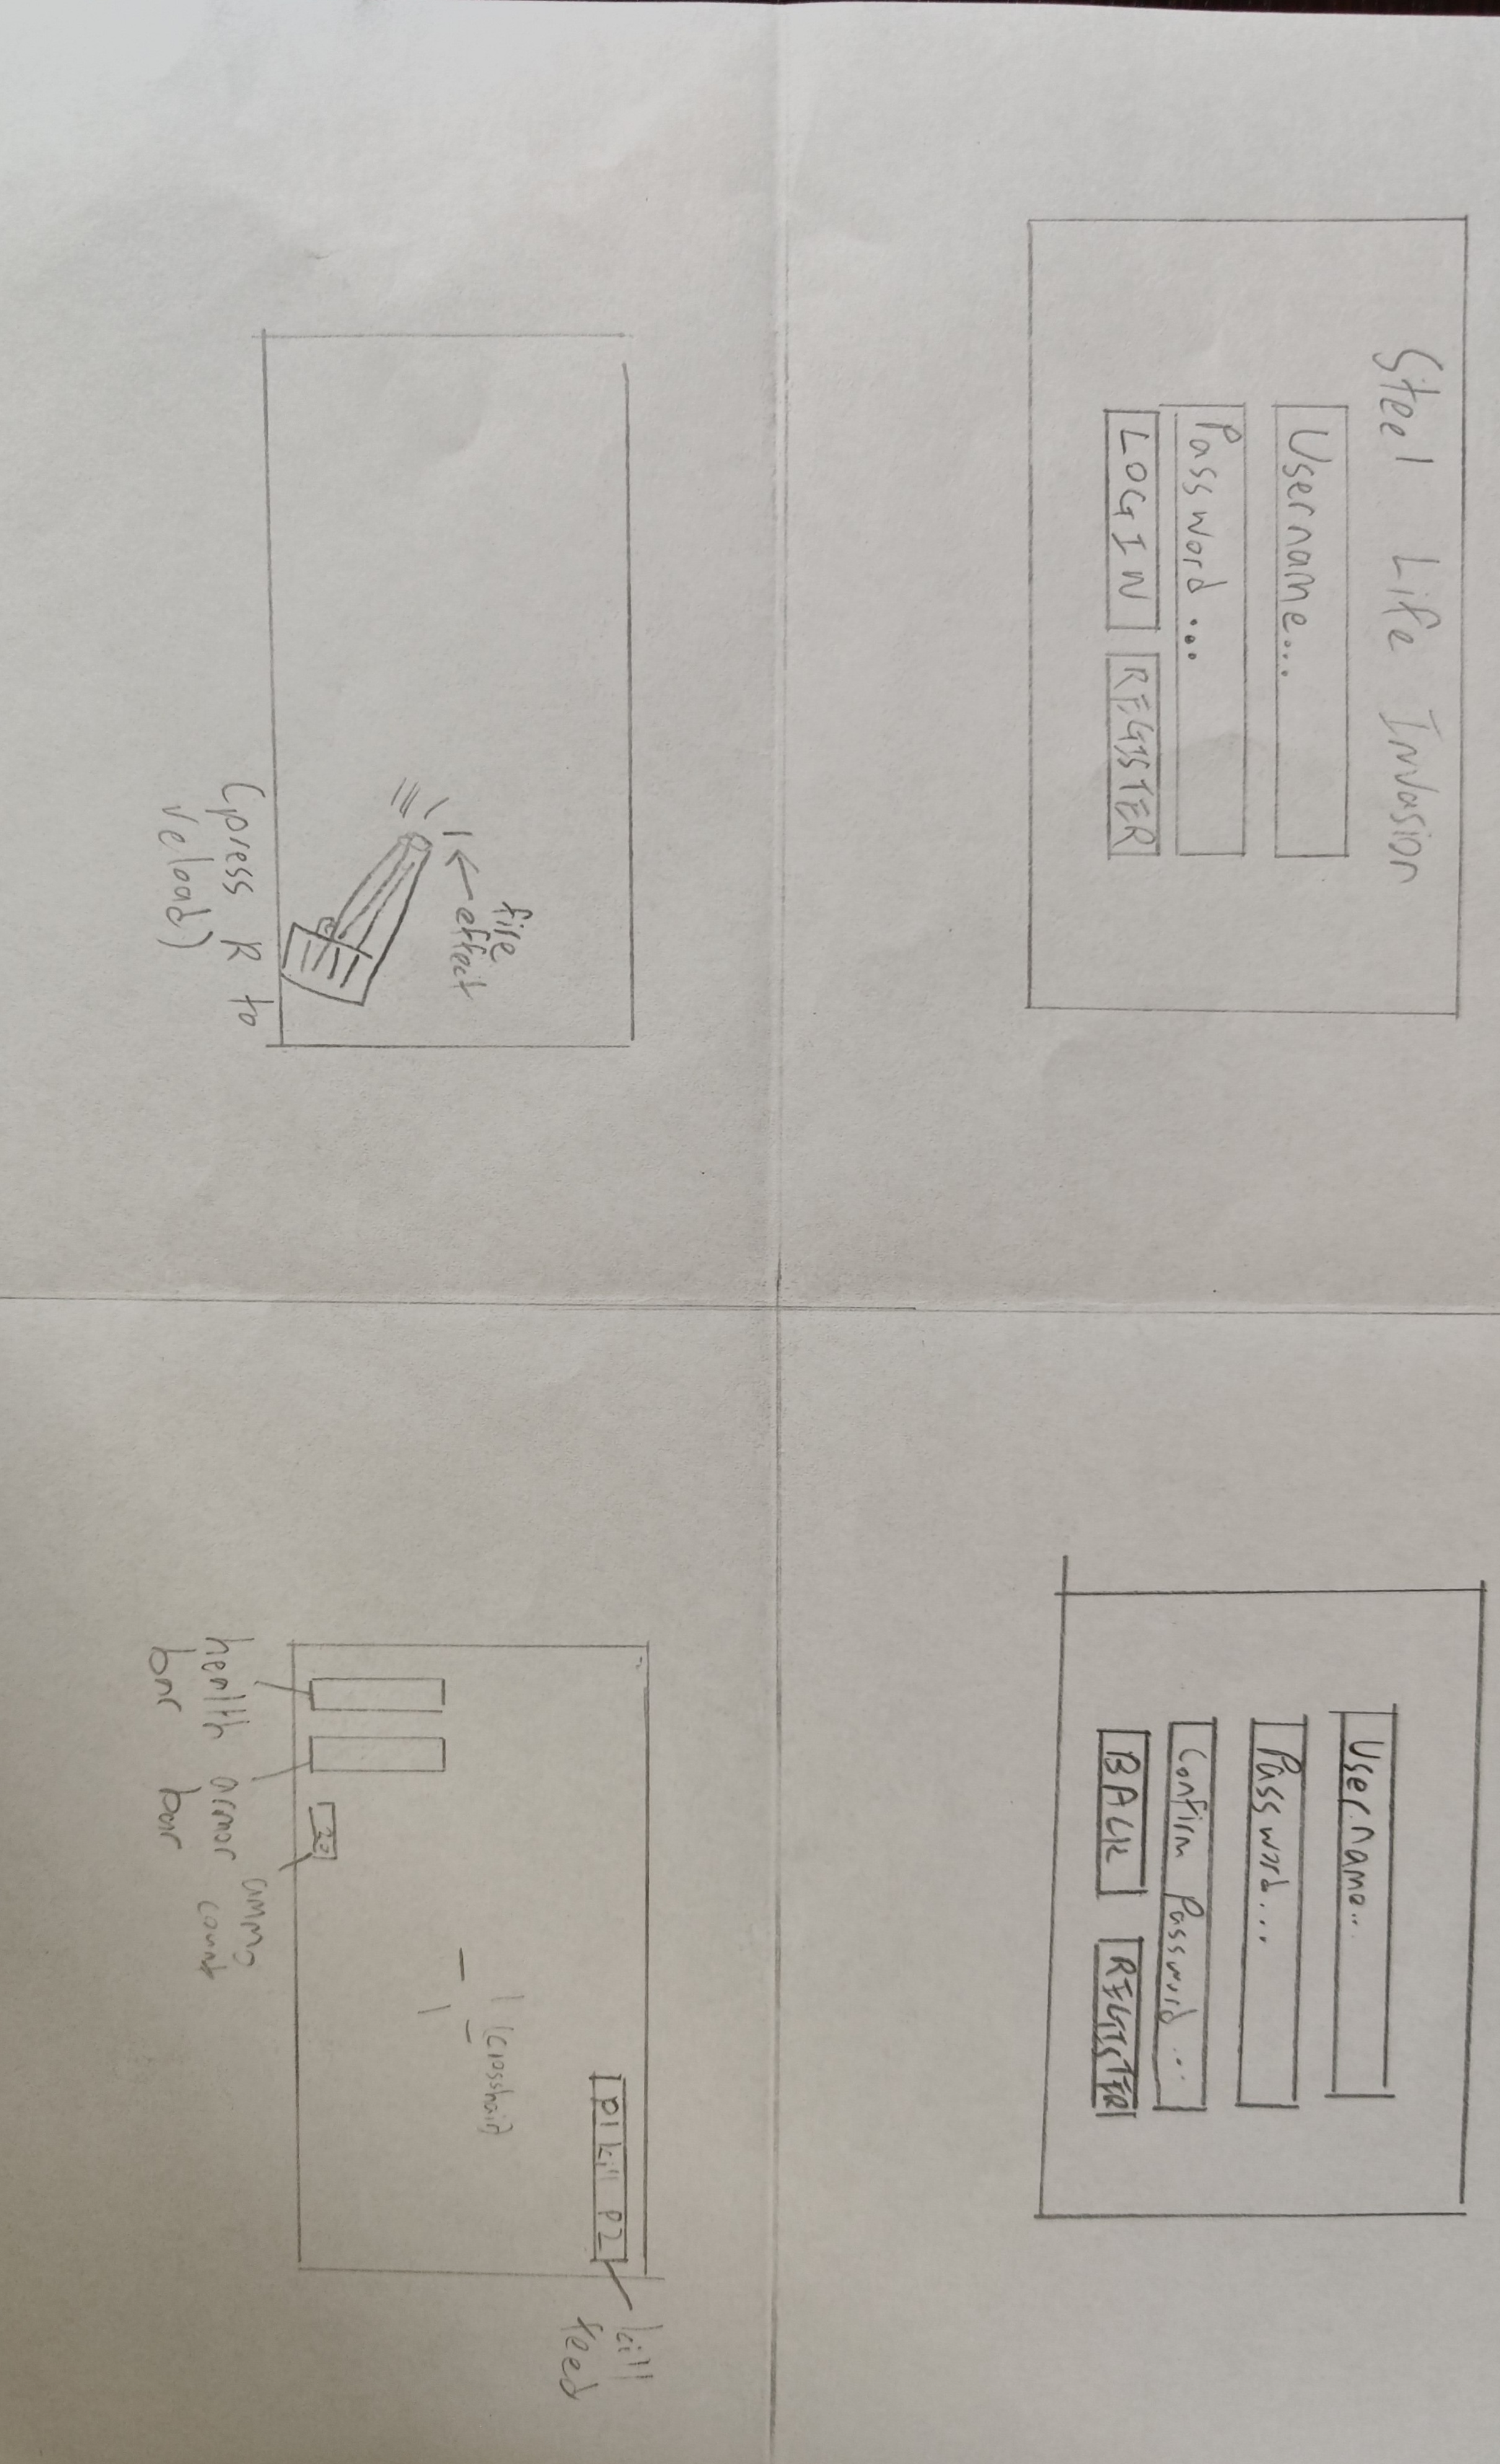 Steel Life Invasion
Username...
Password...
LOGIN REGISTER
Username..
Password...
Confirm Password...
BACK REGISTER
fire
effect
(press R to
reload)
P1 kill P2
kill
feed
(crosshair)
health
bar
armor
bar
ammo
count